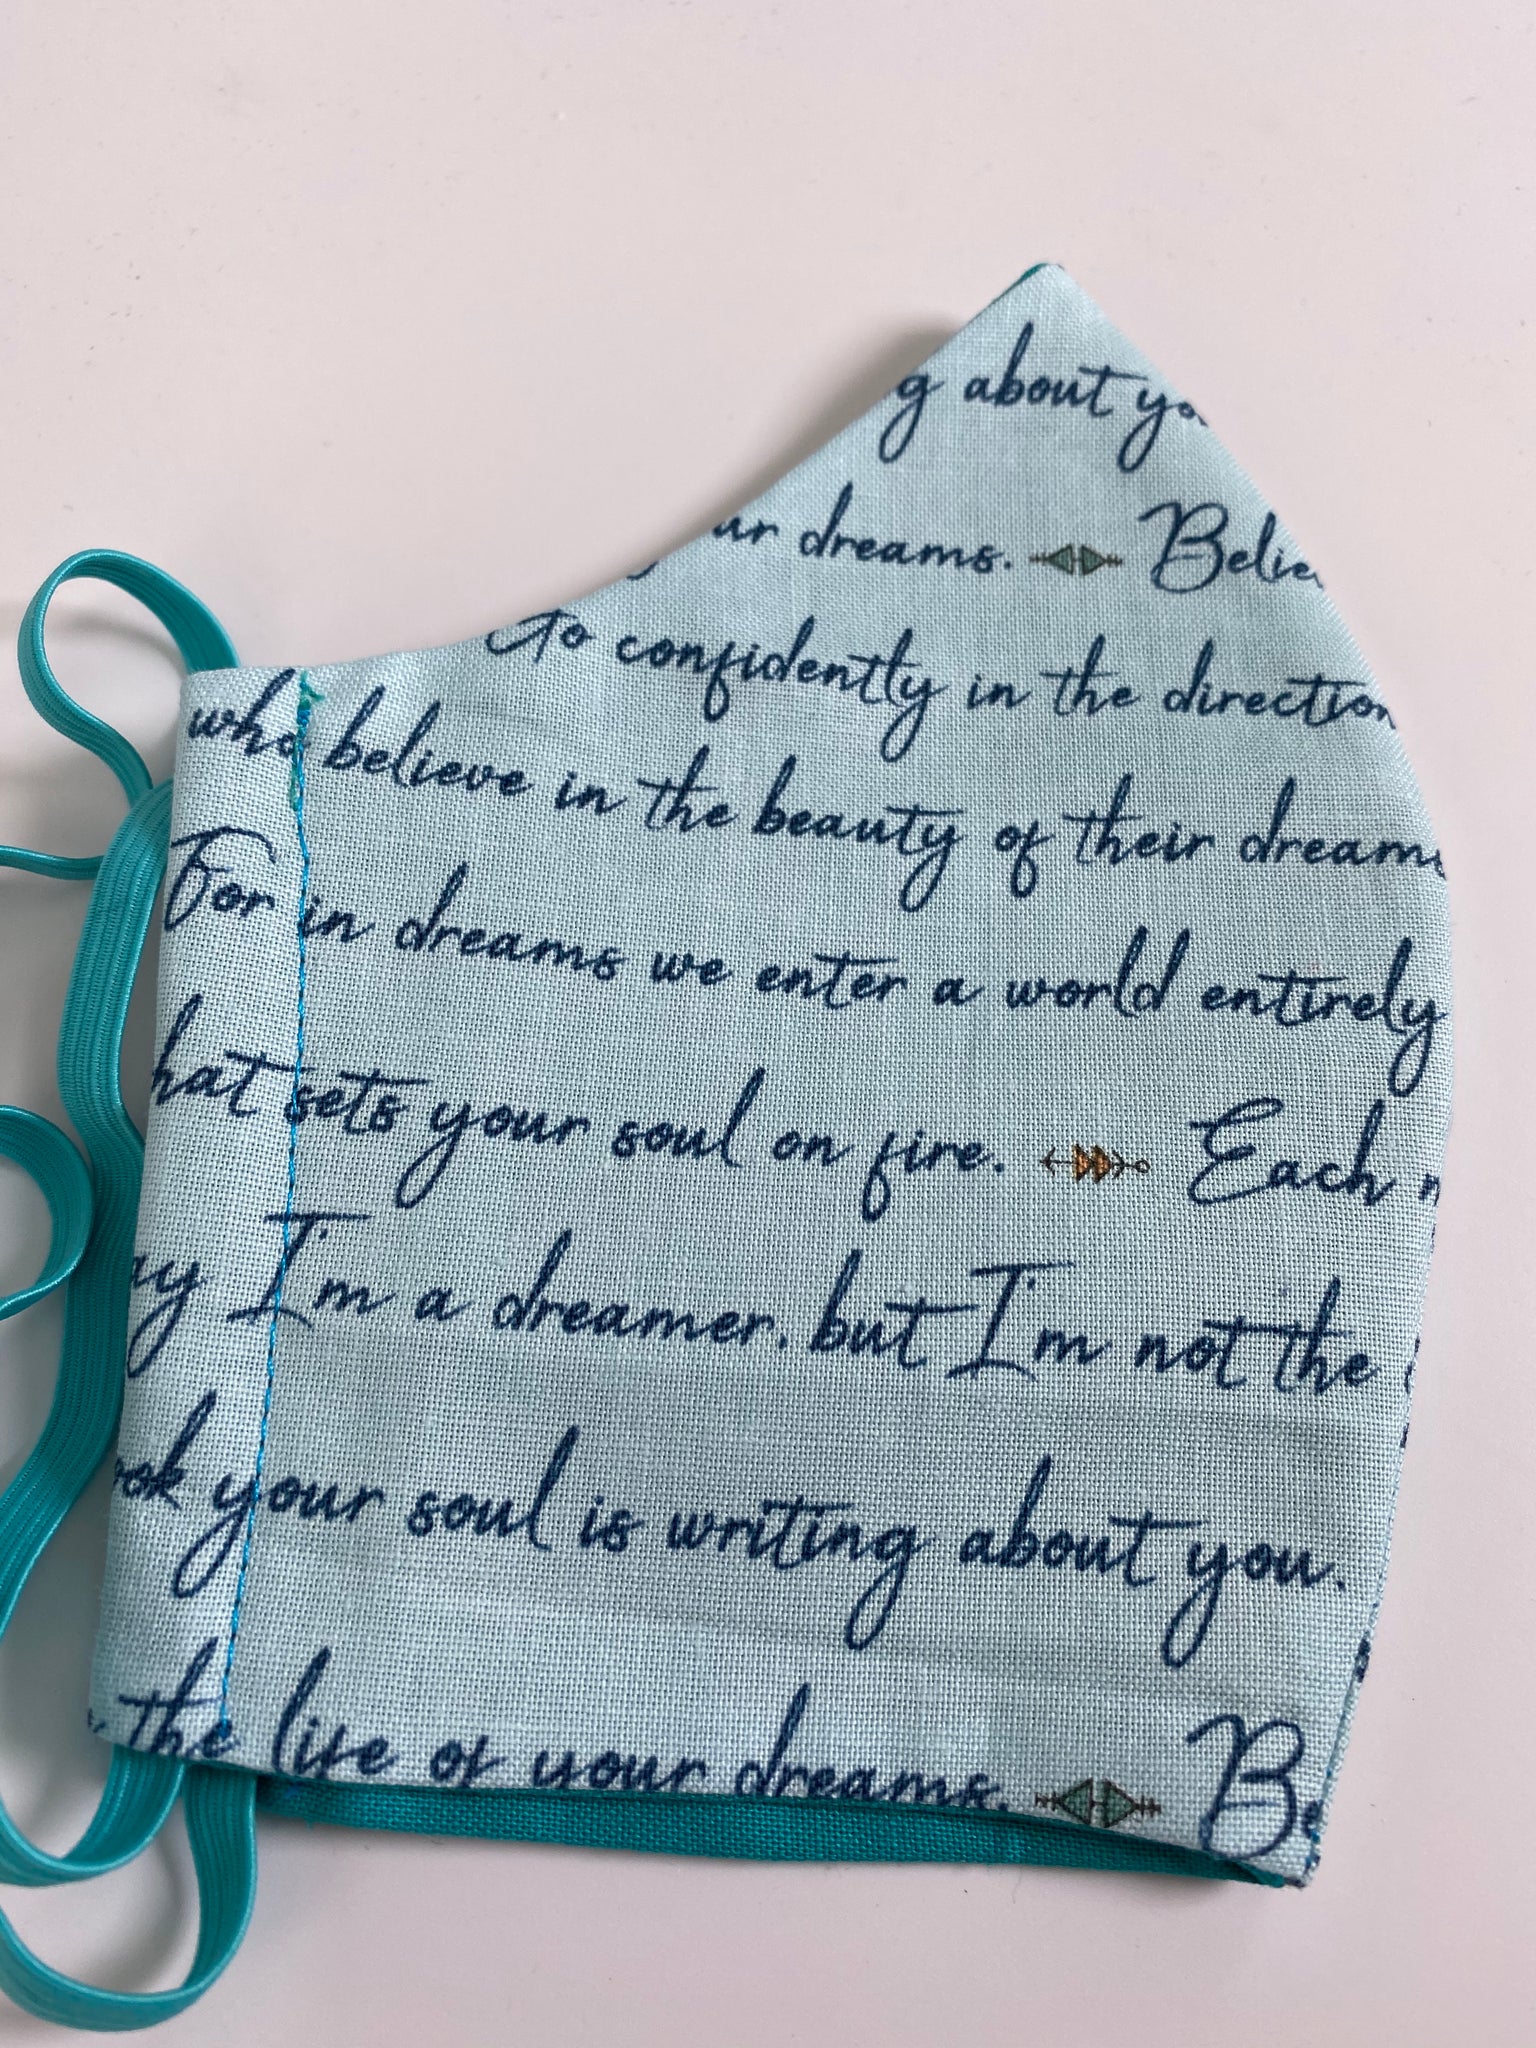 g about yo
ur dreams. Belie
Go confidently in the direction
who believe in the beauty of their dreams
For in dreams we enter a world entirely
hat sets your soul on fire. Each
ay I'm a dreamer, but I'm not the
ook your soul is writing about you.
the life of your dreams. Be